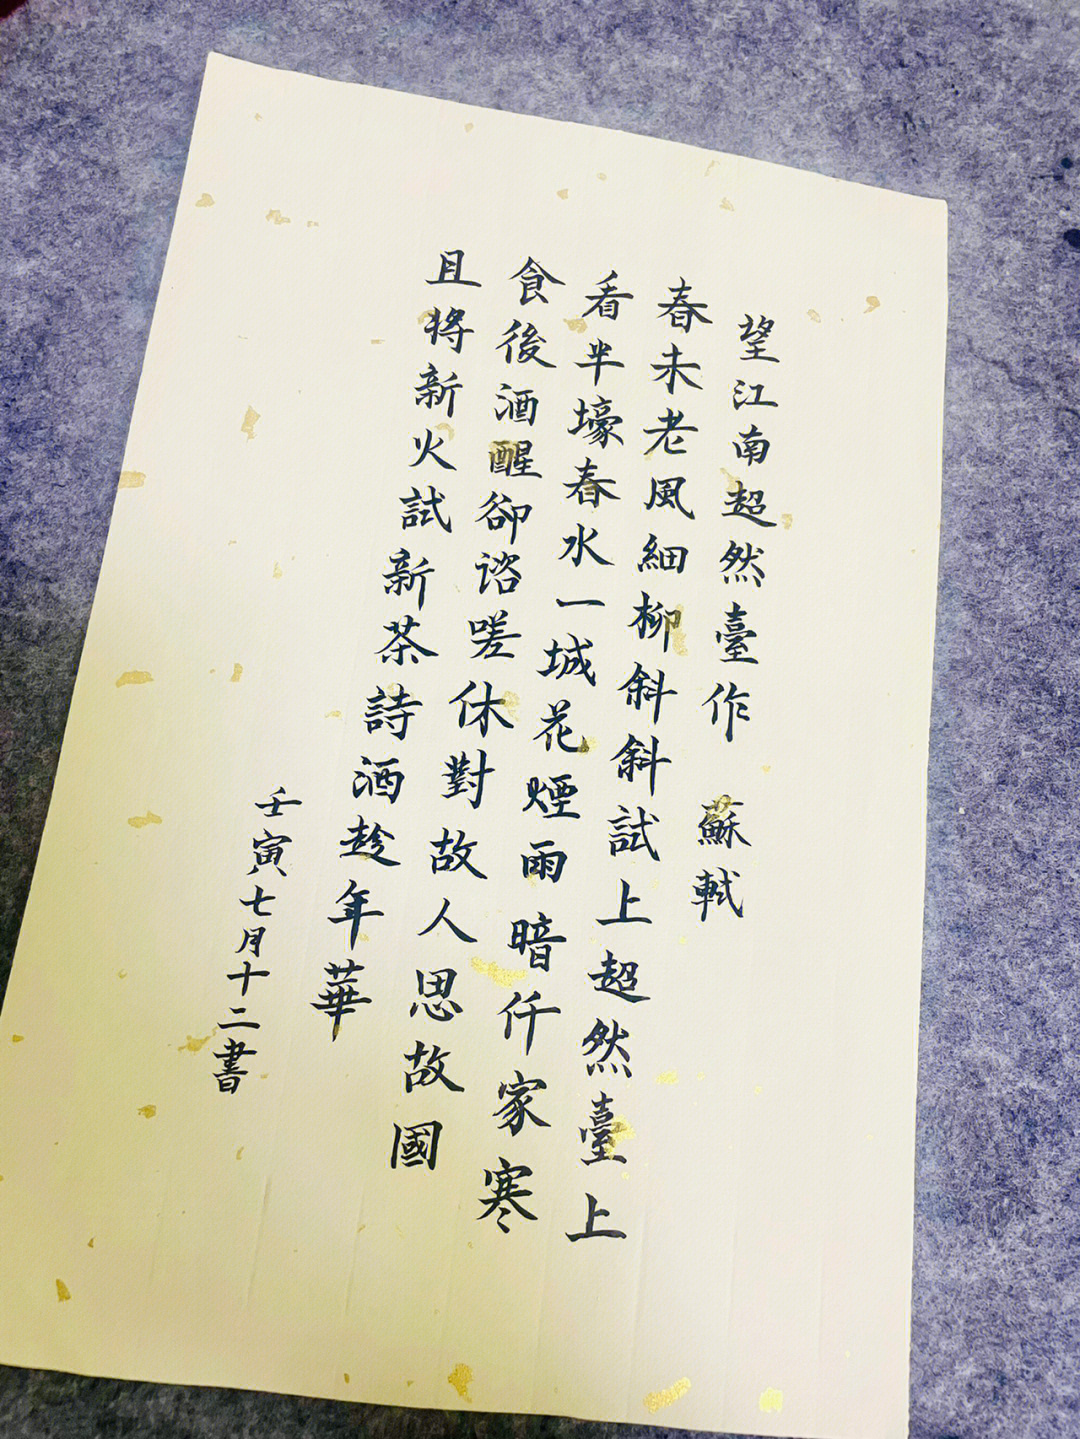 望江南超然臺作　蘇軾
春未老風細柳斜斜試上超然臺上
看半壕春水一城花煙雨暗仟家寒
食後酒醒卻諮嗟休對故人思故國
且將新火試新茶詩酒趁年華
壬寅七月十二書